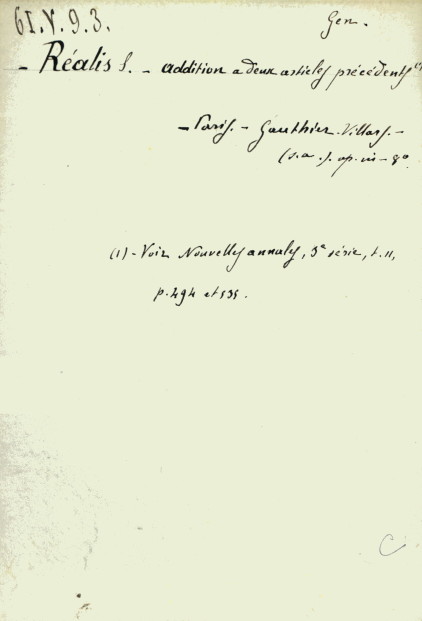 61.V.9.3.
Gen.
- Réalis S. - addition a deux articles précédents (1)
- Paris. - Gauthier-Villars. -
(s.a.). op. in - 8º
(1) - Voir Nouvelles annales, 3e série, t. II,
p. 494 et 535.
C